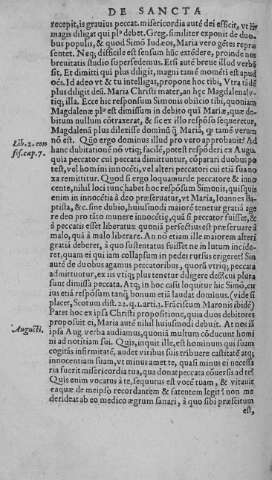 DE SANCTA
recepit, is grauius peccat. misericordia autē dei efficit, vt is
magis diligat qui plꝰ debet. Greg. similiter exponit de duo-
bus populis, & quod Simō Iudæos, Maria vero gētes repræ-
sentet. Neq; difficile est sensum hūc extēdere, proinde nos
breuitatis studio supersedemus. Etsi autē breue illud verbū
est, Et dimitti qui plus diligit, magis tamē monēti est apud
nos. Id adeo vt & tu intelligas, propone hoc tibi, Vtra fidē
plus diligit deū. Maria Christi mater, an hęc Magdalena? v-
tiq; illa. Ecce hic responsum Simonis obiicio tibi, quoniam
Magdalenæ plꝰ est dimissum in debito quā Mariæ, quæ de-
bitum nullum cōtraxerat, & sic ex illo respōso sequeretur,
Magdalenā plus dilexisse dominū q̄ Mariā, q̄ tamē verum
nō est. Quō ergo dominus illud pro vero approbauit? Ad
Lib. 2. con
fes. cap. 7.
hanc dubitationē nō vtiq; facilē, potest respōderi ex Augu.
quia peccator cui peccata dimittuntur, cōparari duobus po
test, vel homini innocēti, vel alteri peccatori cui etiā sua no
xa remittitur. Quod si ergo loquamur de peccatore & inno
cente, nihil loci tunc habet hoc respōsum Simonis, quisquis
enim in innocētia à deo præseruatur, vt Maria, Ioannes Ba-
ptista, &c. siue dubio, huiusmodi maiorē tenetur gratiā age
re deo pro tāto munere innocētię, quā si peccator fuisset, &
à peccatis esset liberatus: quoniā perfectius est præseruare à
malo, quā à malo liberare. An nō etiam ille maiorem alteri
gratiā deberet, à quo sustentatus fuisset ne in lutum incide-
ret, quam ei qui iam collapsum in pedes rursus erigeret? Sin
autē de duobus agamus peccatoribus, quorū vtriq; peccata
admittuntur, ex iis vtiq; plus tenetur diligere deū, cui plura
sunt dimissa peccata. Atq; in hoc casu loquitur hic Simō, cu
ius etiā respōsum tanq̄ bonum etiā laudat dominus. (vide si
placet, Scotum dist. 22. q. 1. art. 1. Fráciscum Maronis ibidē)
Patet hoc ex ipsa Christi propositione, quia duos debitores
proposuit ei, Maria autē nihil huiusmodi debuit. At nos ei
Augusti.
ipsa Aug. verba audiamus, quonia multum cōducent homi
ni ad notitiam sui. Quis, inquit ille, est hominum qui suam
cogitās infirmitatē, audet viribus suis tribuere castitatē atq;
innocentiam suam, vt minus amet te, quasi minus ei necessa
ria fuerit misericordia tua, qua donat peccata cōuersis ad te?
Quis enim vocatus à te, sequutus est vocē tuam, & vitauit
eaquæ de meipso recordantem & fatentem legit? non me
derideat ab eo medico ægrum sanari, à quo sibi præstitum
est,